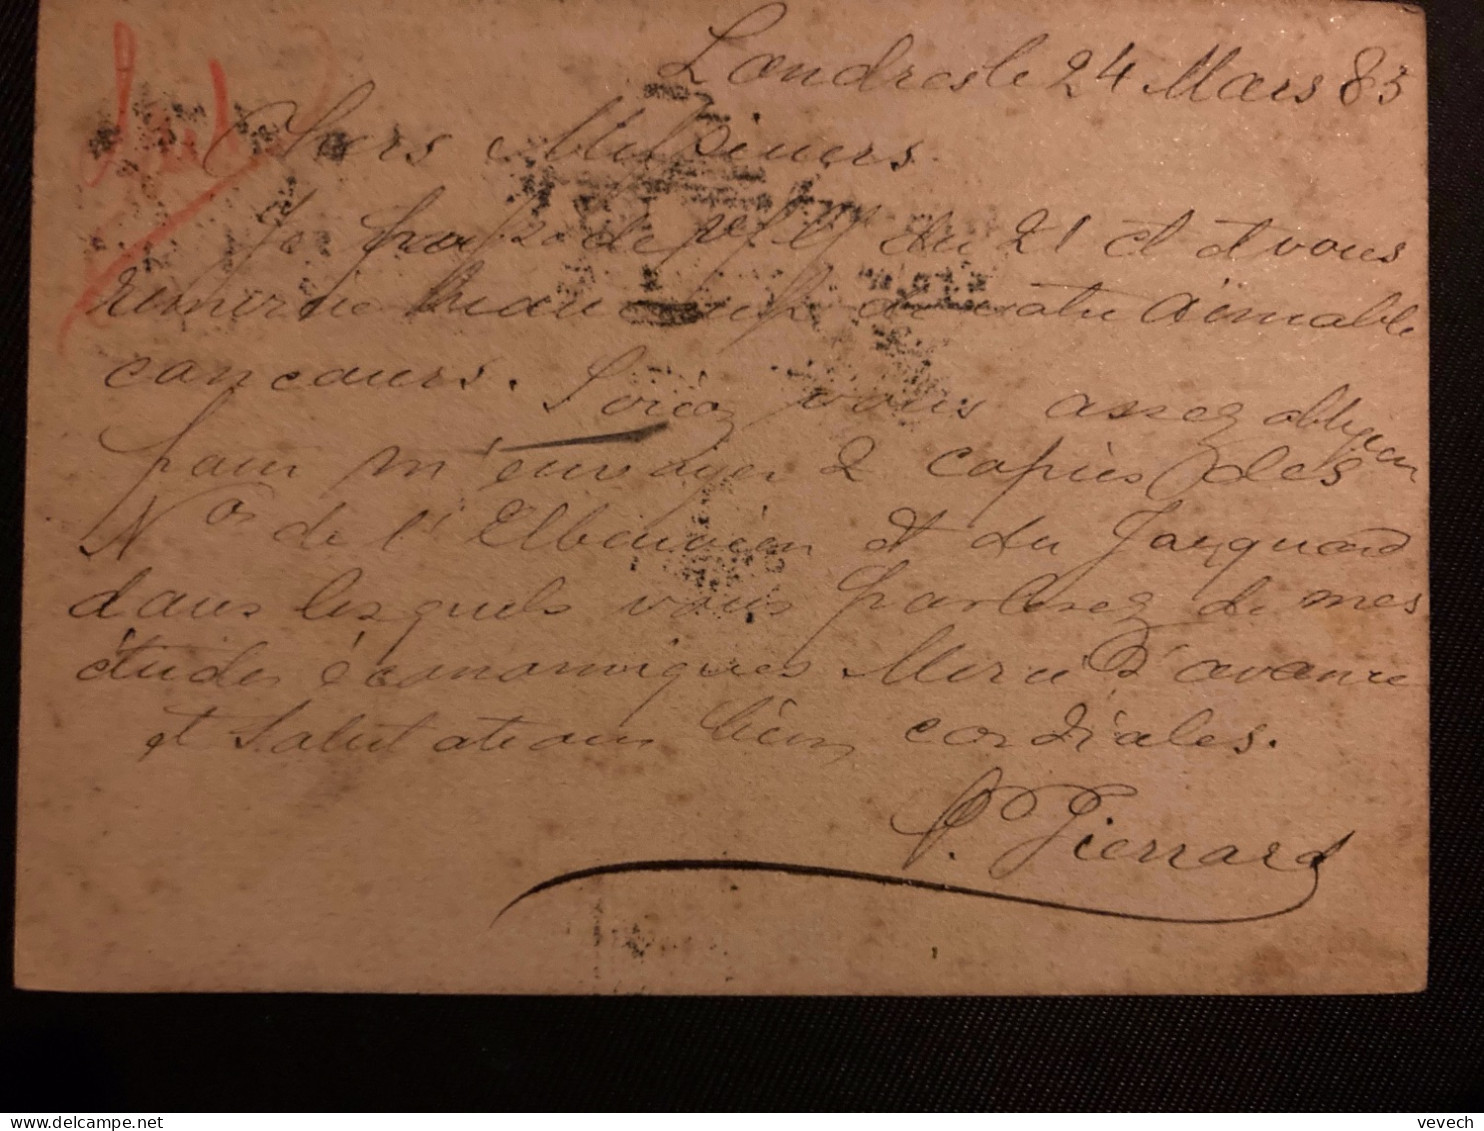 Londres le 24 Mars 83
Chers Messieurs
Je profite de du 21 ct et vous
remercie beaucoup de votre aimable
concours. Soyez vous assez obligeant
pour m'envoyer 2 copies des
Nos de l'Elbeuvien et du Jacquard
dans lesquels vous parlerez de mes
études économiques Merci d'avance
et Salutations bien cordiales.
P. Pierrard
vevech